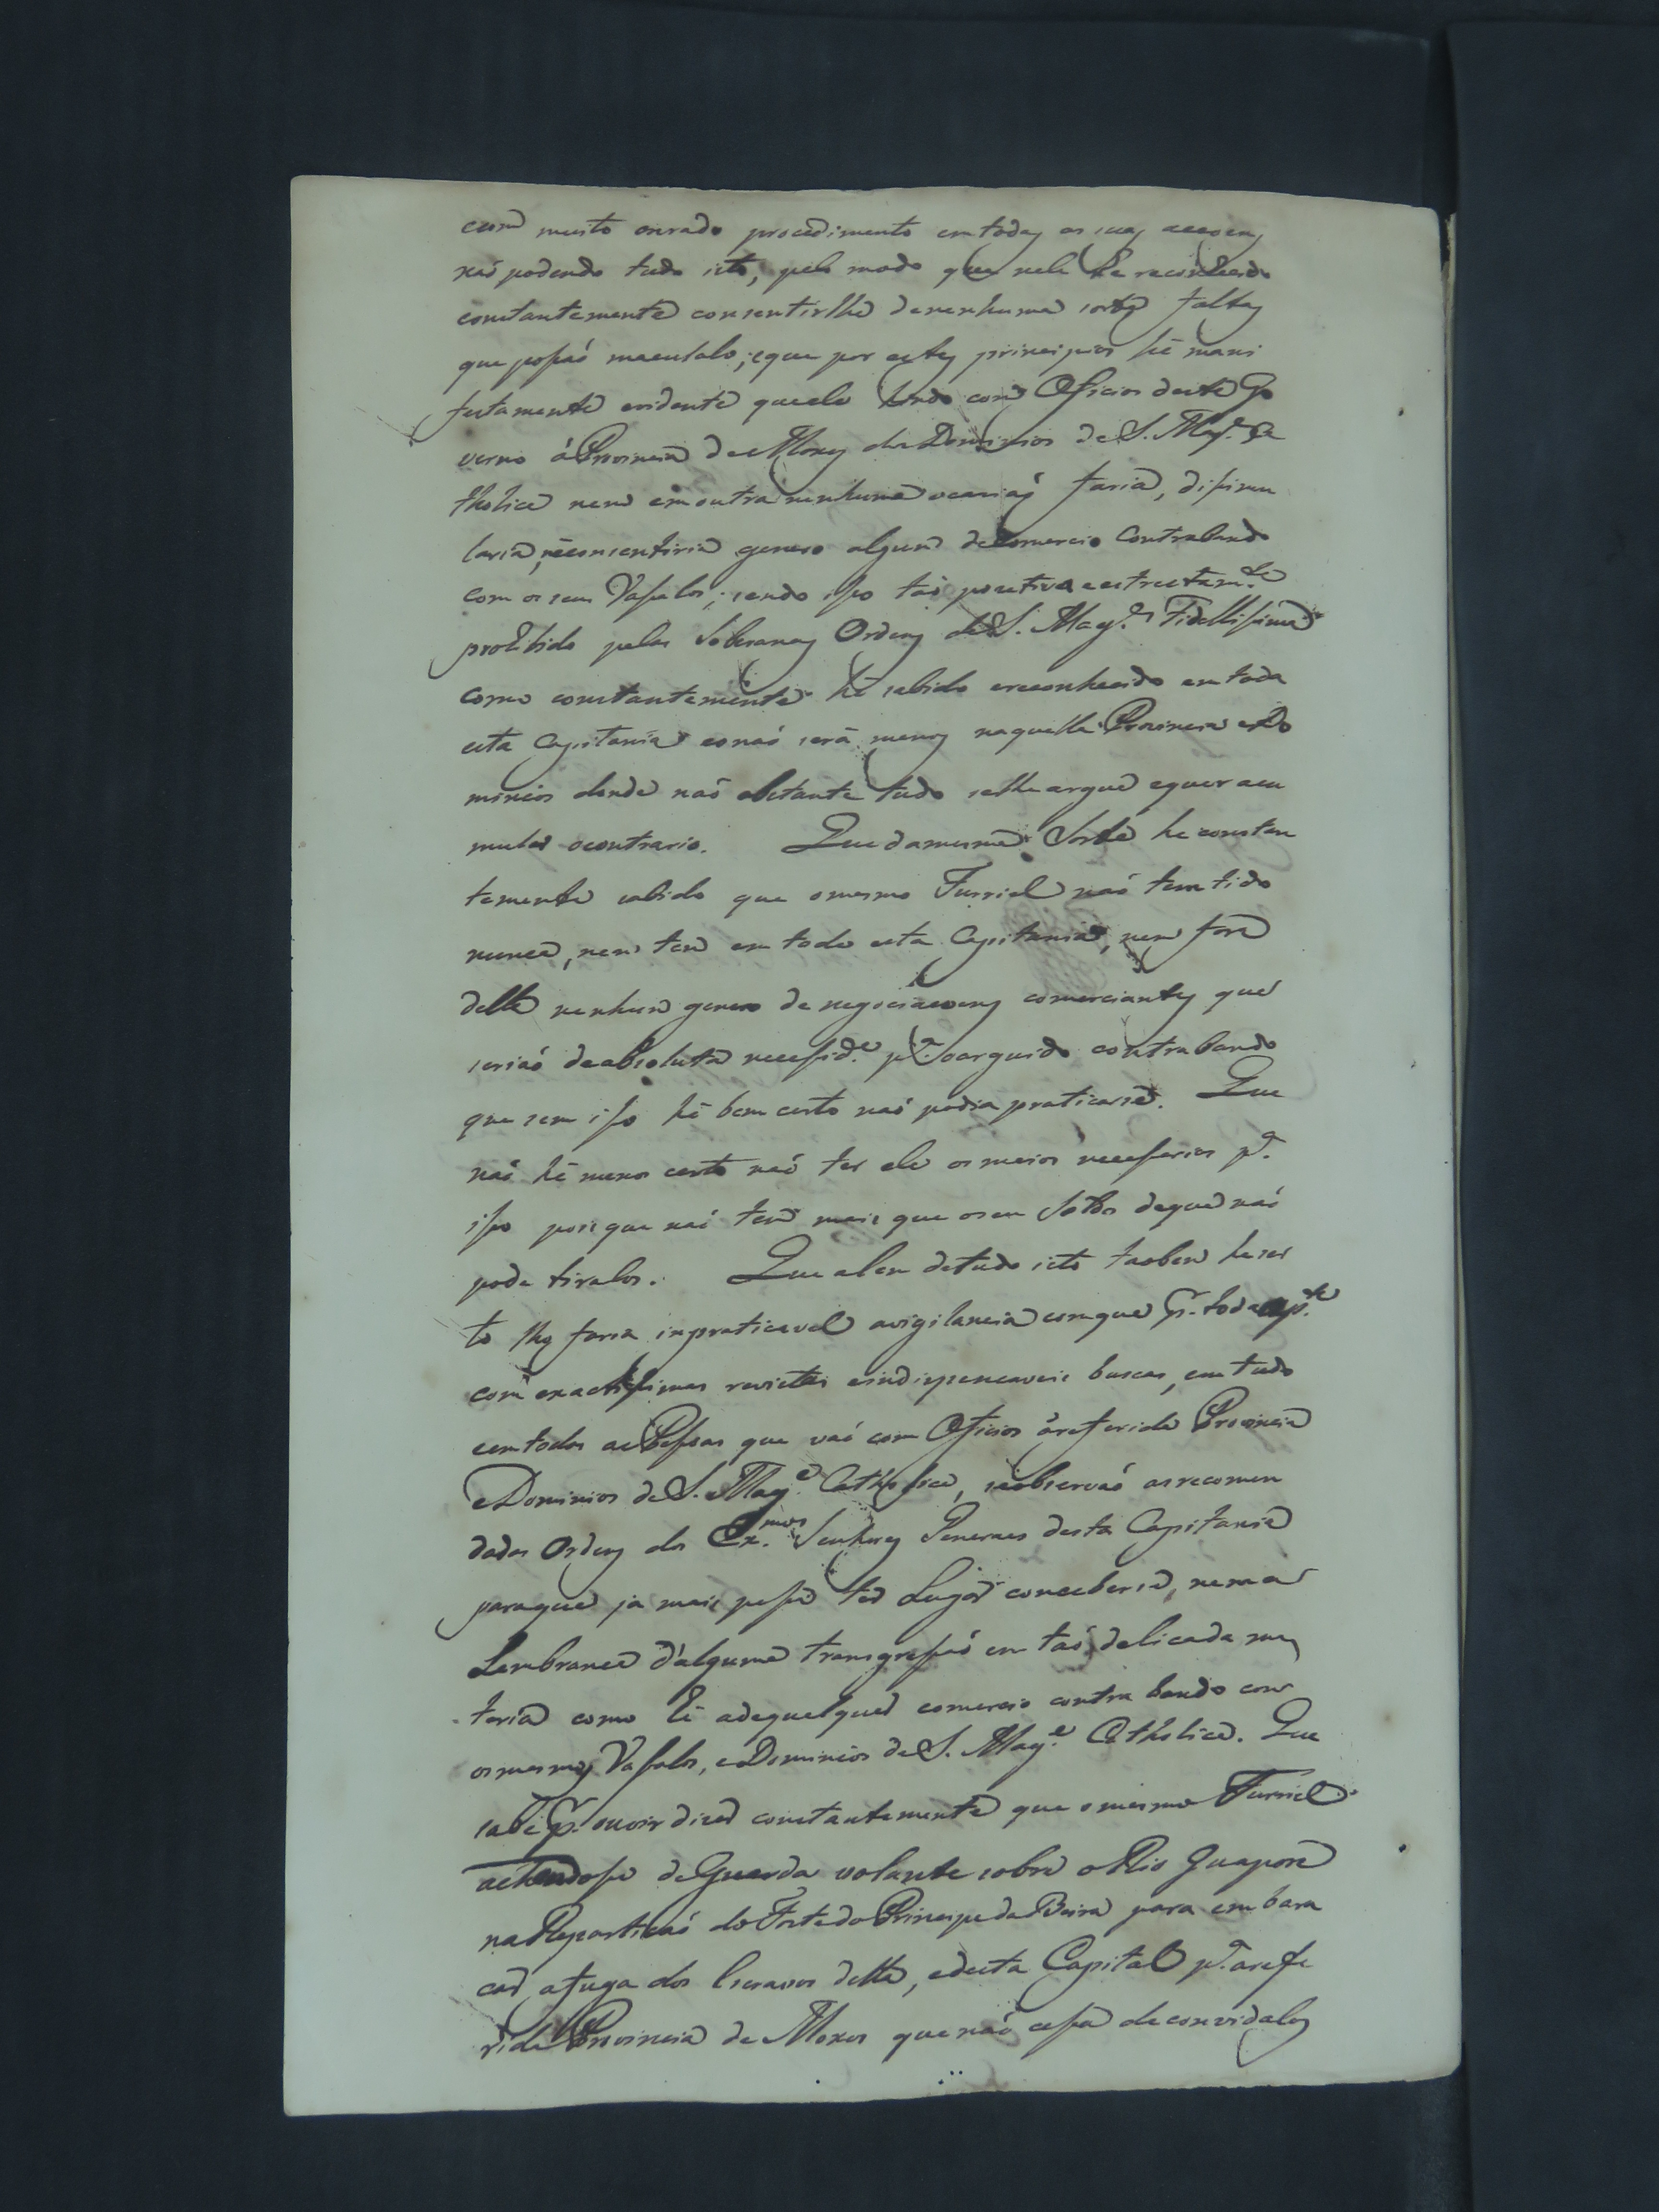 com muito onrado procedimento em todas as suas accoens
naó podendo tudo isto, pelo modo que nele he reconhecido
constantemente consentirlhe denenhuma sorte faltas
que posaó maculalo; eque por estes principios hé mani
festamente evidente queele hindo com Oficios deste Go
verno áProvincia de Moxos dos Dominios de S. Mag.e Ca
tholica nem em outra nenhuma ocaziaó faria, disimu
laria, néconsentiria genero algum deComercio Contrabando
com os seus Vasalos; sendo iso taó pozetiva eestrectam.te
prohibido pelas Soberanas Ordens de S. Mag.e Fidellisima
como constantemente hé sabido ereconhecido em toda
esta Capitania eonaó será menos naquella Provincia eDo
minios donde naó obstante tudo selheargue equer acu
mular ocontrario. Quedamesma Sorte he constan
temente sabido que omesmo Furriel naó tem tido
nunca, nem tem em toda esta Capitania, nem fora
della nenhum genero de negociacoens comerciantes que
seriaó deabsoluta necesid.e p.a oarguido contrabando
que sem iso hé bem certo naó podia praticarse. Que
naó hé menos certo naó ter ele os meios necesarios p.a
iso porque naó tem mais que oseu Soldo deque naó
pode tiralos. Que alem detudo isto taobem he cer
to lhe faria inpraticavel avigilancia comque p.r toda ap.te
com exactisimas revistas eindispencaveis buscas, em tudo
eemtodas as Pesoas que vaó com Oficios áreferida Provincia
eDominios de S. Mag.e Catholica, seobservaó as recomen
dadas Ordens dos Ex.mos Senhores Generaes desta Capitania
paraque ja mais posa ter Lugar conceberse, nem a
Lembranca d'alguma transgresaó em taó delicada ma
teria como hé adequalquer comercio contra bando com
osmesmos Vasalos, eDominios de S. Mag.e Catholica. Que
sabe p.r ouvir dizer constantemente que omesmo Furriel
achandose deGuarda volante sobre oRio Guapore
naReparticaó do Forte do Principe da Beira para embara
car afuga dos Escravos della, edesta Capital p.a arefe
rida Provincia de Moxos que naó cesa de convidalos